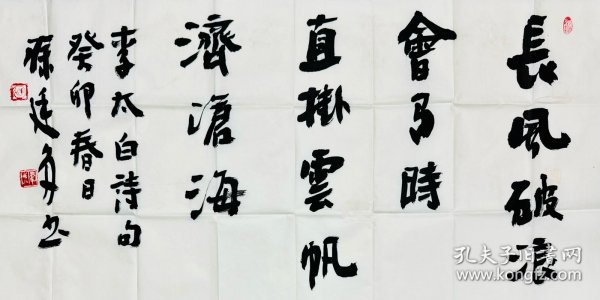 長風破浪
會有時
直掛雲帆
濟滄海
李太白詩句
癸卯春日
孔夫子旧书网
www.kongfz.com